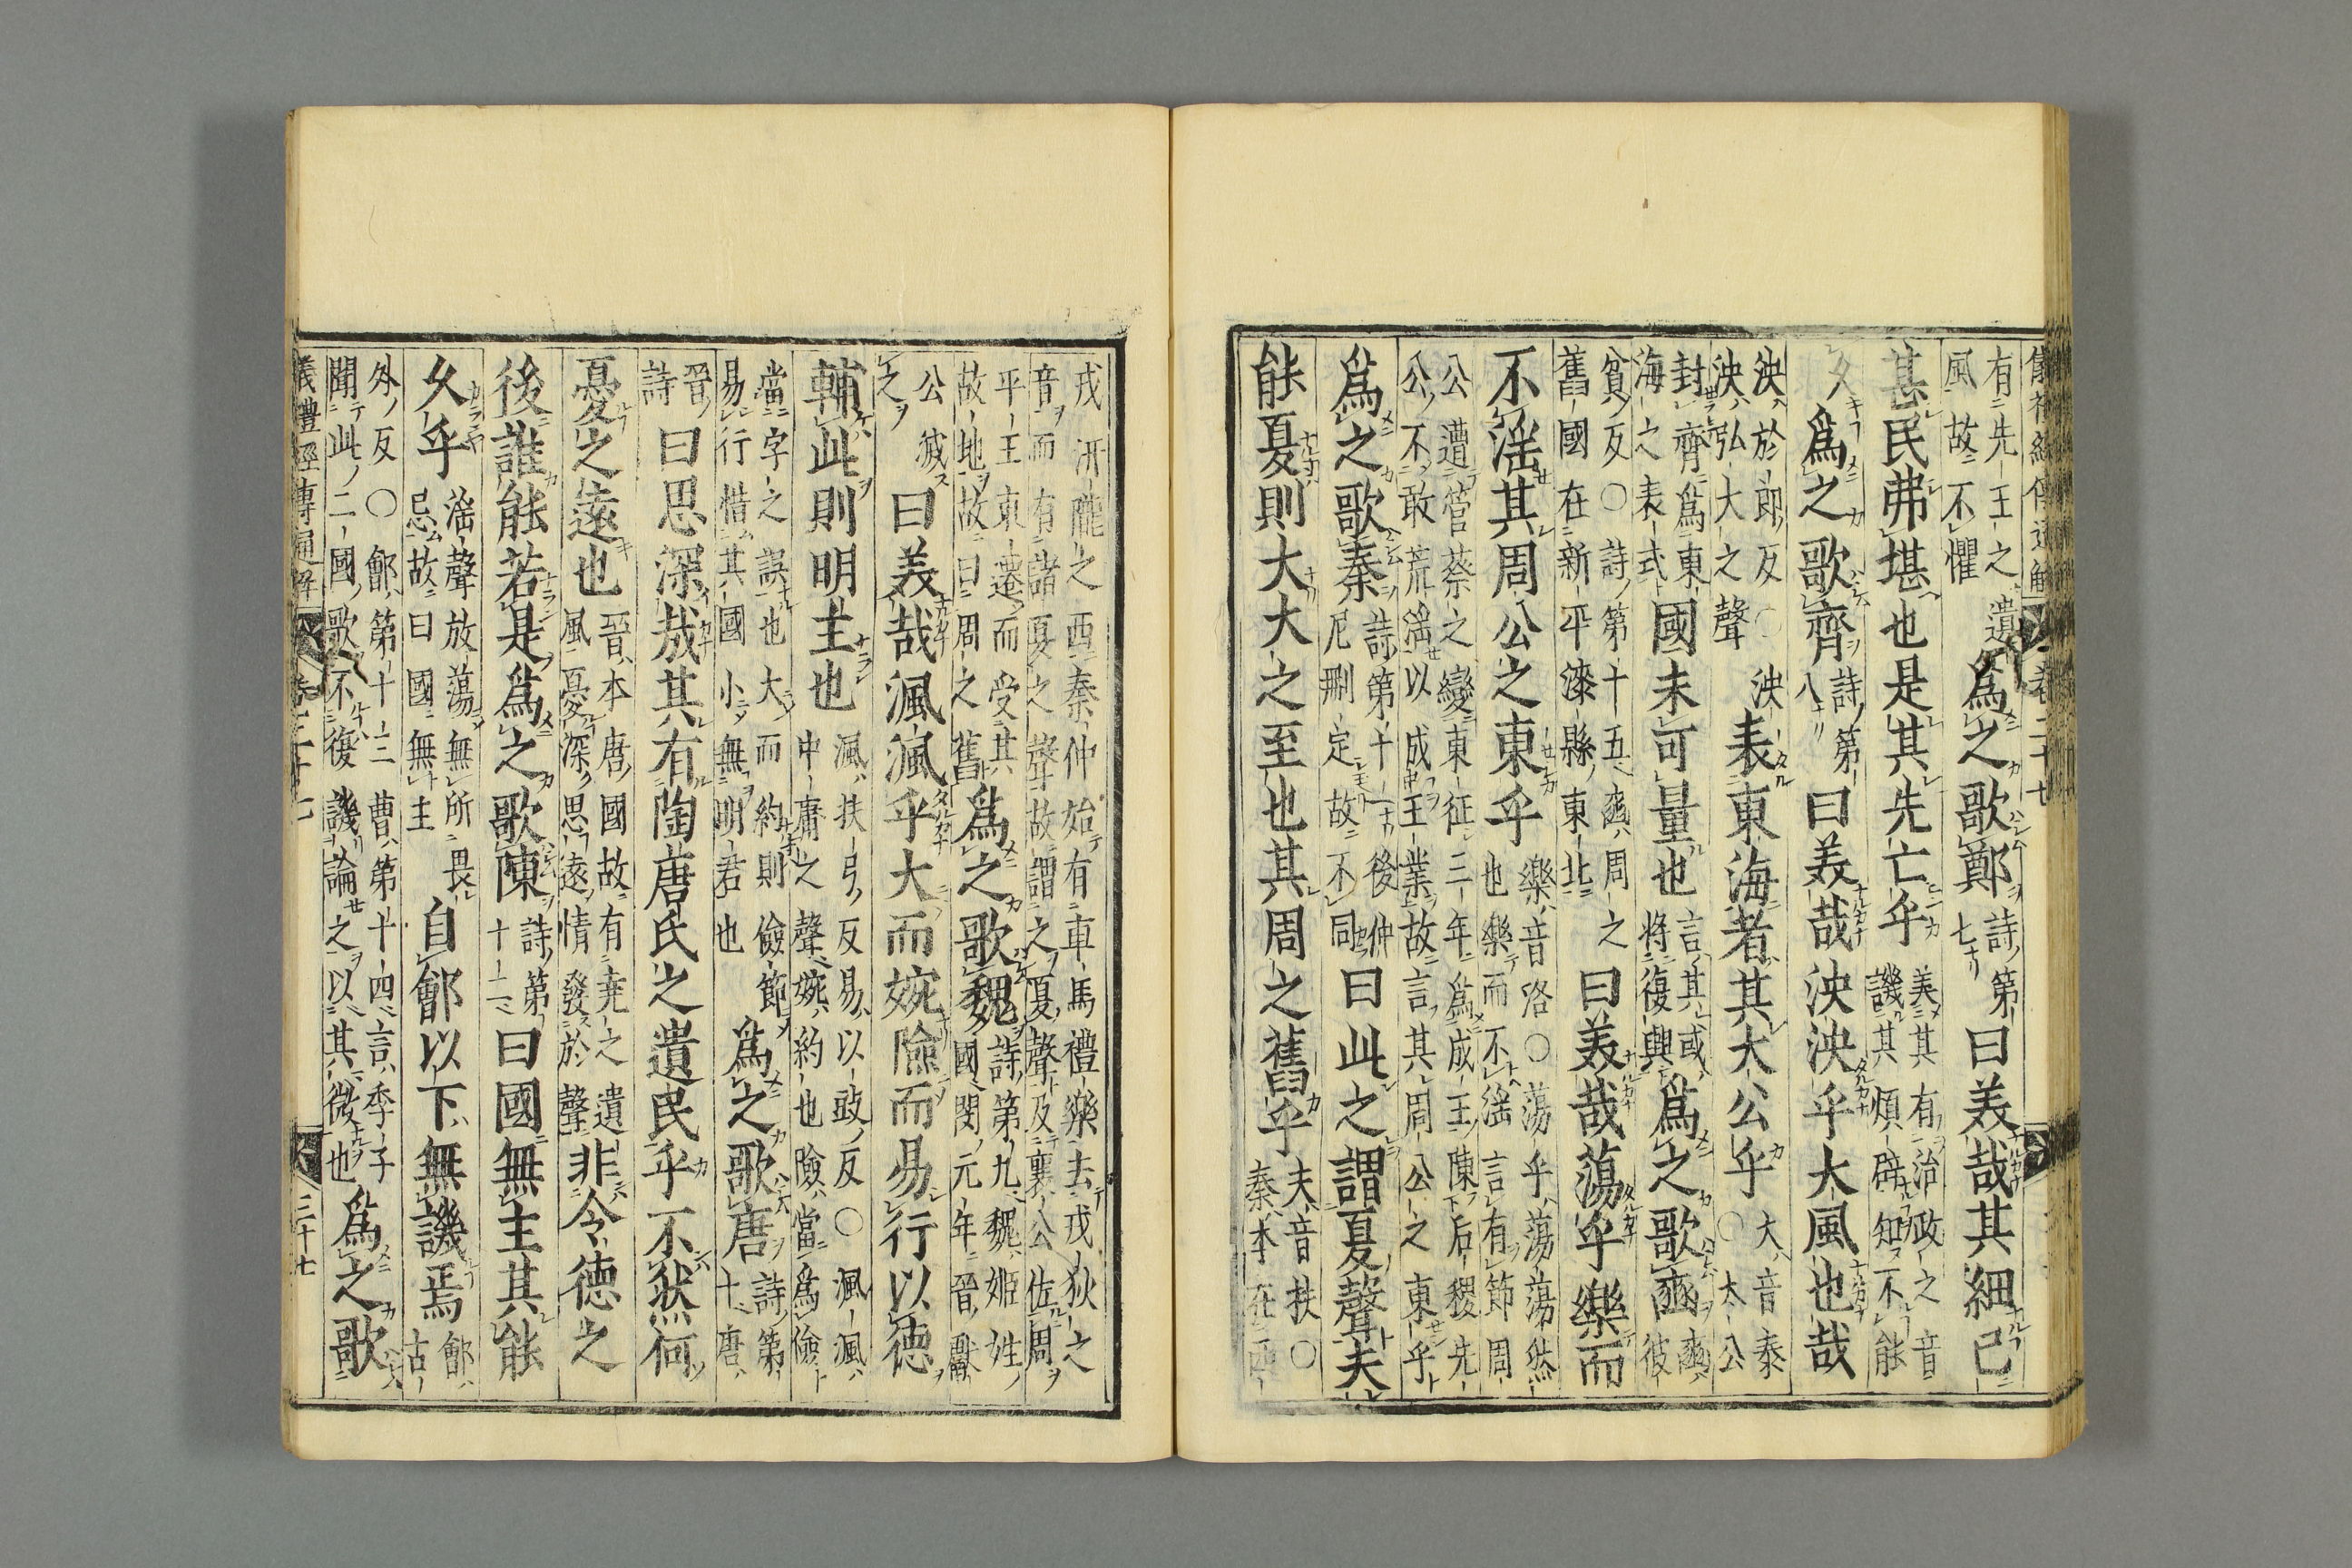 儀禮經傳通解 卷二十七
有先王之遺風故不懼爲之歌鄭詩第七曰美哉其細已
甚民弗堪也是其先亡乎美其有治政之音譏其煩辟知不能
久爲之歌齊詩第八曰美哉泱泱乎大風也哉
泱於郎反○泱泱弘大之聲表東海者其大公乎大音泰○太公
封齊爲東海之表式國未可量也言其或將復興爲之歌豳豳彼
貧反○詩第十五豳周之舊國在新平漆縣東北曰美哉蕩乎樂而
不淫其周公之東乎樂音洛○蕩乎蕩蕩然也樂而不淫言有節周
公遭管蔡之變東征三年爲成王陳后稷先公不敢荒淫以成王業故言其周公之東乎
爲之歌秦詩第十一後仲尼刪定故不同曰此之謂夏聲夫
能夏則大大之至也其周之舊乎夫音扶○秦本在西
戎汧隴之西秦仲始有車馬禮樂去戎狄之音而有諸夏之聲故謂之夏聲及襄公佐周
平王東遷而受其故地故曰周之舊爲之歌魏詩第九魏姬姓國閔元年晉獻
公滅之曰美哉渢渢乎大而婉險而易行以德
輔此則明主也渢扶弓反易以豉反○渢渢中庸之聲婉約也險當爲儉
當字之誤也大而約則儉節易行惜其國小無明君也爲之歌唐詩第十唐
晉詩曰思深哉其有陶唐氏之遺民乎不然何
憂之遠也晉本唐國故有堯之遺風憂深思遠情發於聲非令德之
後誰能若是爲之歌陳詩第十二曰國無主其能
久乎淫聲放蕩無所畏忌故曰國無主自鄶以下無譏焉鄶古
外反○鄶第十三曹第十四言季子聞此二國歌不復譏論之以其微也爲之歌
儀禮經傳通解 卷二十七 三十七